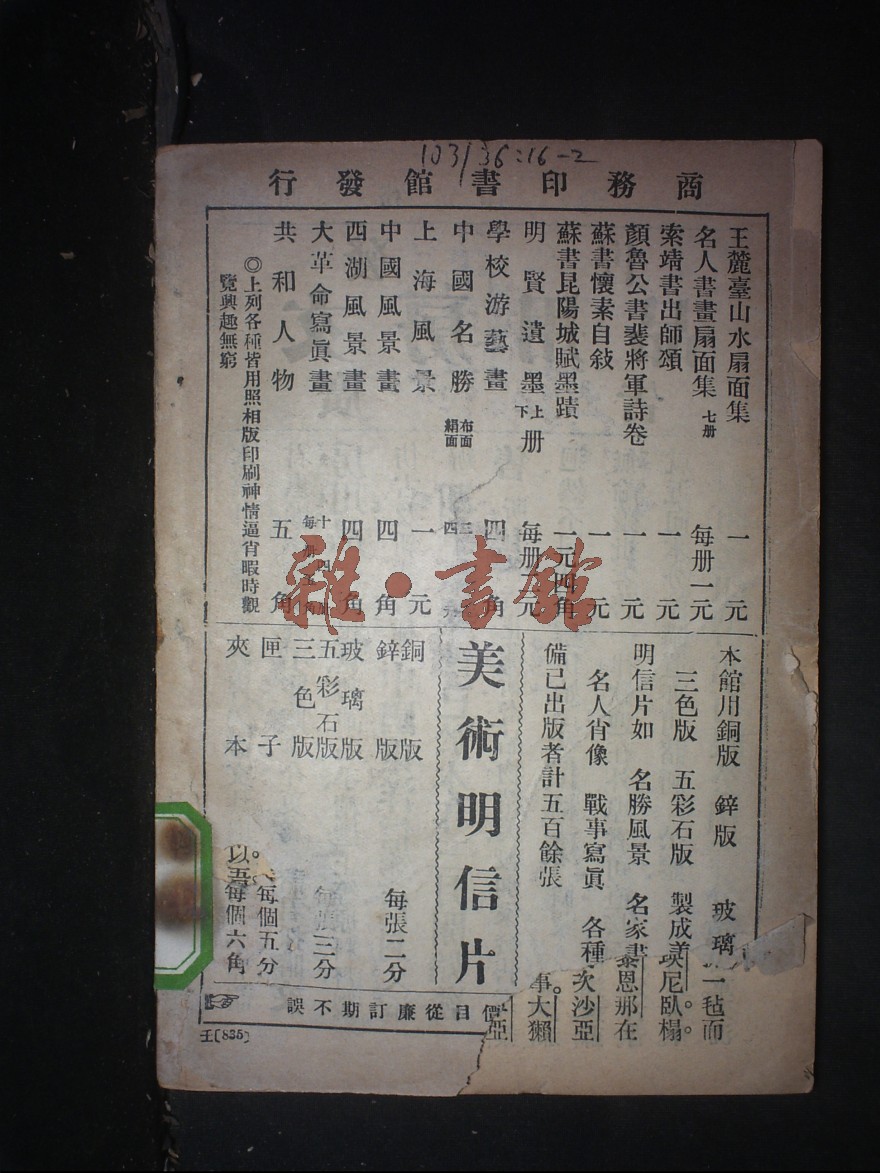 103/36:16-2
商務印書館發行
王麓臺山水扇面集 一元
名人書畫扇面集 七册 每册一元
索靖書出師頌 一元
顏魯公書裴將軍詩卷 一元
蘇書懷素自敍 一元
蘇書昆陽城賦墨蹟 一元四角
明賢遺墨 上下册 每册元
學校游藝畫 四角
中國名勝 布面 絹面 三 四元
上海風景 一元
中國風景畫 四角
西湖風景畫 四角
大革命寫眞畫 十四 每册四角
共和人物 五角
◎上列各種皆用照相版印刷神情逼肖暇時觀
覽興趣無窮
雜·書館
本館用銅版 鋅版 玻璃
三色版 五彩石版 製成美
明信片如 名勝風景 名家書
名人肖像 戰事寫眞 各種
備已出版者計五百餘張
美術明信片
銅版
鋅版 每張二分
玻璃版
五彩石版
三色版 每張三分
匣子 每個五分
夾本 每個六角
價目從廉訂期不誤
一毡而
瑛尼臥榻。
黎恩那在
次沙亞
事。大獺
亞
以吾
王(835)